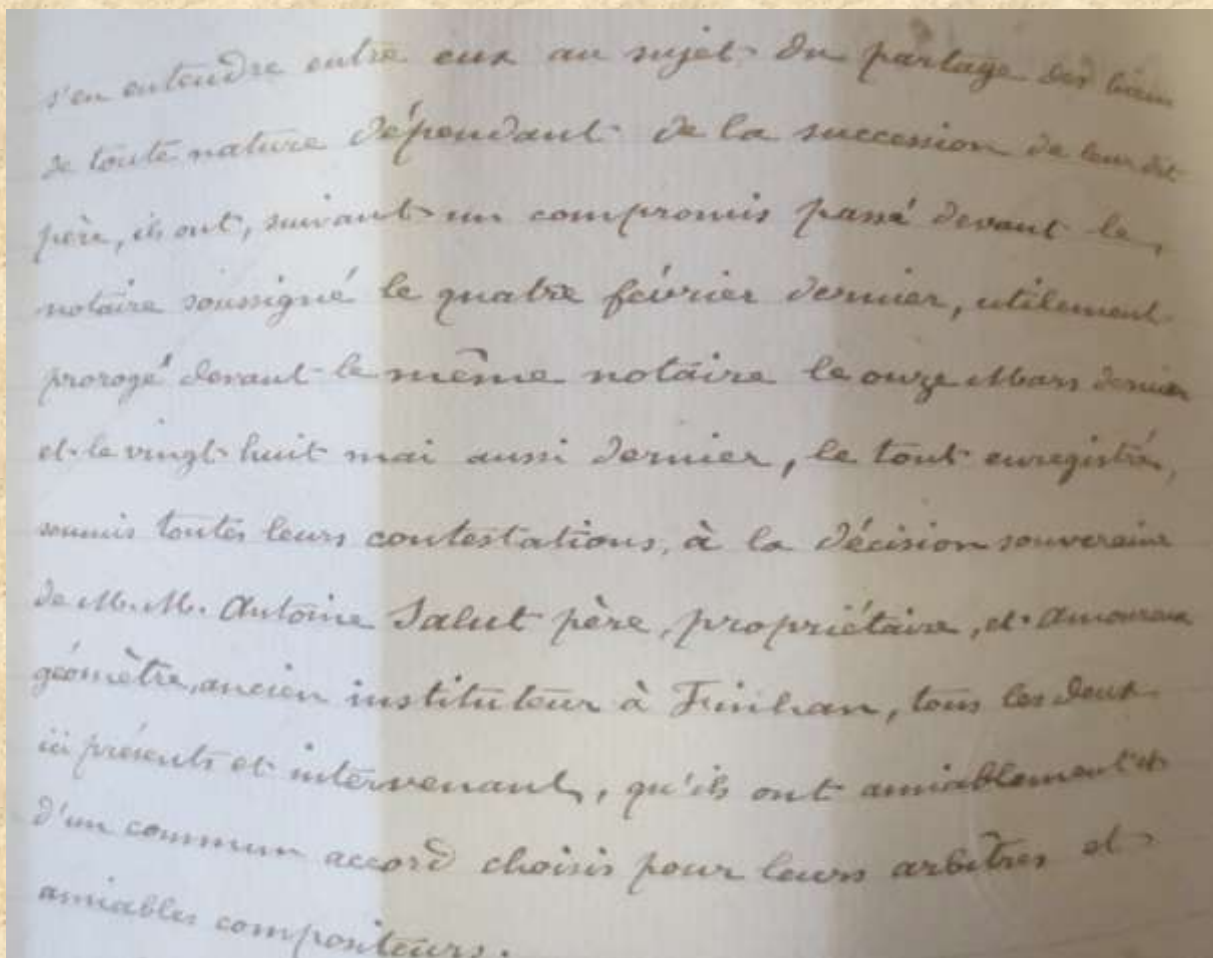 s'en entendre entre eux au sujet du partage des biens
de toute nature dépendant de la succession de leur dit
père, ils ont, suivant un compromis passé devant le
notaire soussigné le quatre février dernier, utilement
prorogé devant le même notaire le onze Mars dernier
et le vingt huit mai aussi dernier, le tout enregistré,
soumis toutes leurs contestations, à la décision souveraine
de M.M. Antoine Salut père, propriétaire, et Amoureux
géomètre, ancien instituteur à Finhan, tous les deux
ici présents et intervenant, qu'ils ont amiablement et
d'un commun accord choisis pour leurs arbitres et
amiables compositeurs.